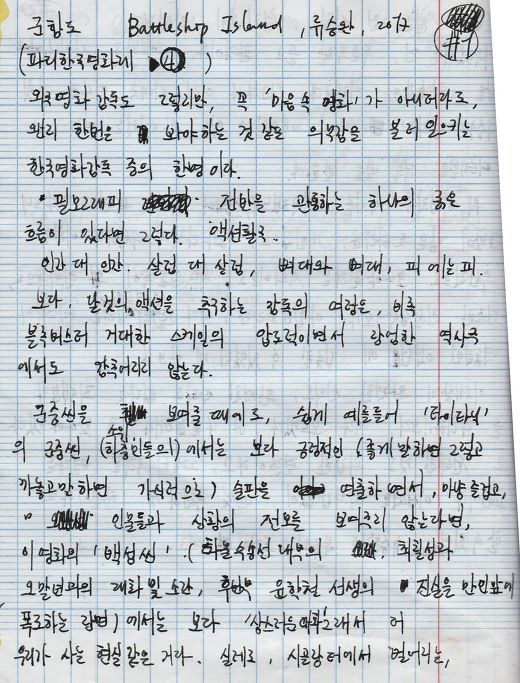 군함도 Battleship Island, 류승완, 2017
#1
(파리한국영화제 ▶④)
외국영화 감독도 그렇지만, 꼭 '마음 속 영화'가 아니더라도,
왠지 한번은 봐야하는 것 같은 의무감을 불러 일으키는
한국영화감독 중의 한명이다.
• 필모그래피 전반을 관통하는 하나의 굵은
흐름이 있다면 그렇다. 액션활극.
인간 대 인간. 살점 대 살점, 뼈대와 뼈대, 피에는 피.
보다, 날것의 액션을 추구하는 감독의 여정은, 비록
블록버스터 거대한 스케일의 압도적이면서 장엄한 역사극
에서도 감추어지지 않는다.
군중씬을 보여줄 때에도, 쉽게 예를들어 '타이타닉'
의 군중씬, (하층민들의) 에서는 보다 긍정적인 (좋게 말하면 그렇고
까놓고 말하면 가식적으로) 술판을 연출하면서, 마냥 즐겁고,
인물들과 상황의 전모를 보여주지 않는다면,
이 영화의 '백성씬'. (하늘 수송선 내부의 최칠성과
오말년과의 대화 및 소란, 후반부 윤학철 선생의 진실을 만인앞에
폭로하는 장면) 에서는 보다 '상스러운 그래서 더
우리가 사는 현실 같은 거다. 실례로, 시골장터에서 벌어지는,